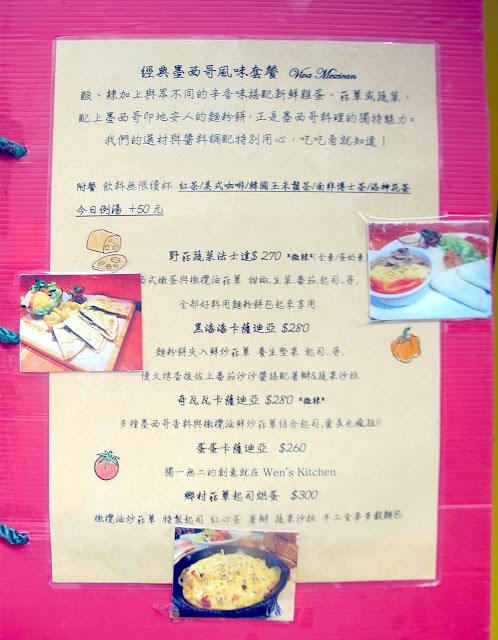 經典墨西哥風味套餐 Viva Mexican
酸、辣加上與眾不同的辛香味搭配新鮮雞蛋、菇蕈或蔬菜,
配上墨西哥印地安人的麵粉餅,正是墨西哥料理的獨特魅力。
我們的選材與醬料調配特別用心,吃吃看就知道!
附餐 飲料無限續杯 紅茶/美式咖啡/韓國玉米鬚茶/南非博士茶/洛神花茶
今日例湯 +50元
野菇蔬菜法士達$ 270 *微辣*(全素/蛋奶素
式嫩蛋與橄欖油菇蕈 甜椒.生菜.番茄.起司..等,
全部好料用麵粉餅包起來享用
黑海洛卡薩迪亞 $280
麵粉餅夾入鮮炒菇蕈 養生堅果 起司..等,
慢火烤香後佐上番茄沙沙醬搭配薯瓣&蔬果沙拉
奇瓦瓦卡薩迪亞 $280 *微辣*
多種墨西哥香料與橄欖油鮮炒菇蕈結合起司,酋長也瘋狂!!
蛋蛋卡薩迪亞 $260
獨一無二的創意就在 Wen's Kitchen
鄉村菇蕈起司烘蛋 $300
橄欖油炒菇蕈 特製起司 紅心蛋 薯瓣 蔬果沙拉 手工全麥多穀麵包